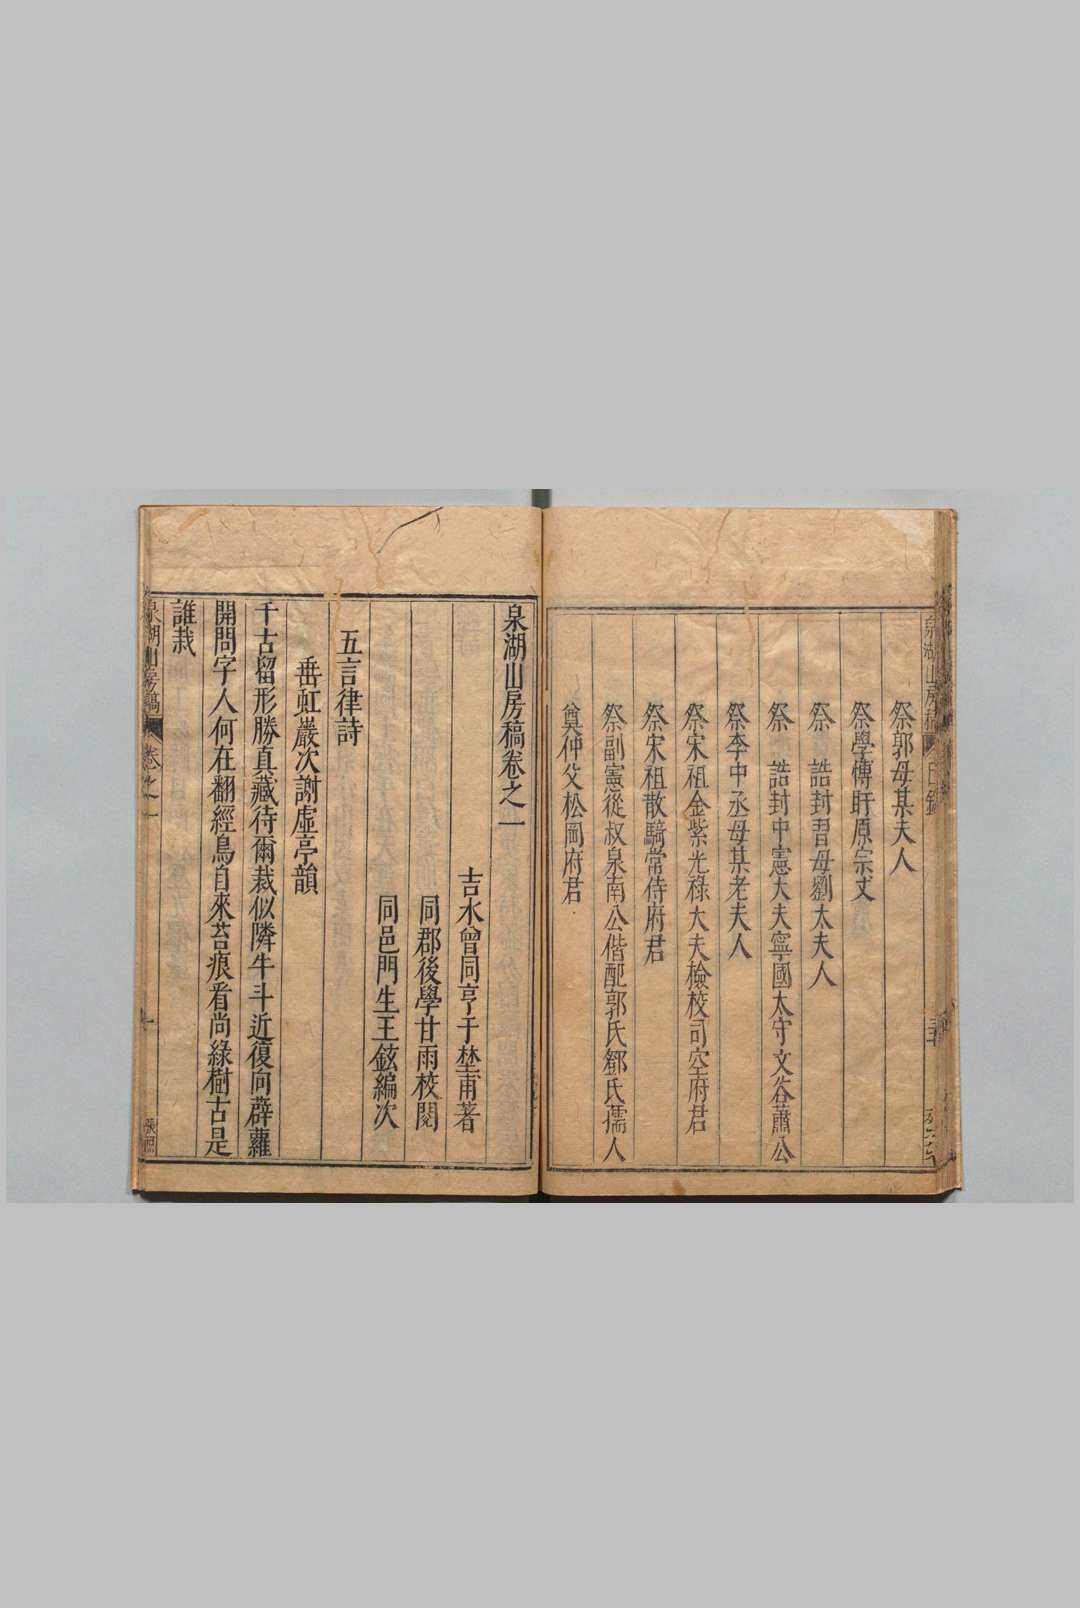 祭郭母某夫人
祭學博盱原宗丈
祭誥封習母劉太夫人
祭誥封中憲大夫寧國太守文谷蕭公
祭李中丞母某老夫人
祭宋祖金紫光祿大夫檢校司空府君
祭宋祖散騎常侍府君
祭副憲從叔泉南公偕配郭氏鄧氏孺人
奠仲父松岡府君
泉湖山房稿卷之一
吉水曾同亨于埜甫著
同郡後學甘雨校閱
同邑門生王鉉編次
五言律詩
垂虹巖次謝虛亭韻
千古留形勝真藏待爾裁似隣牛斗近復向薜蘿
開問字人何在翻經鳥自來苔痕看尚綠樹古是
誰栽
泉湖山房稿
卷之一
一